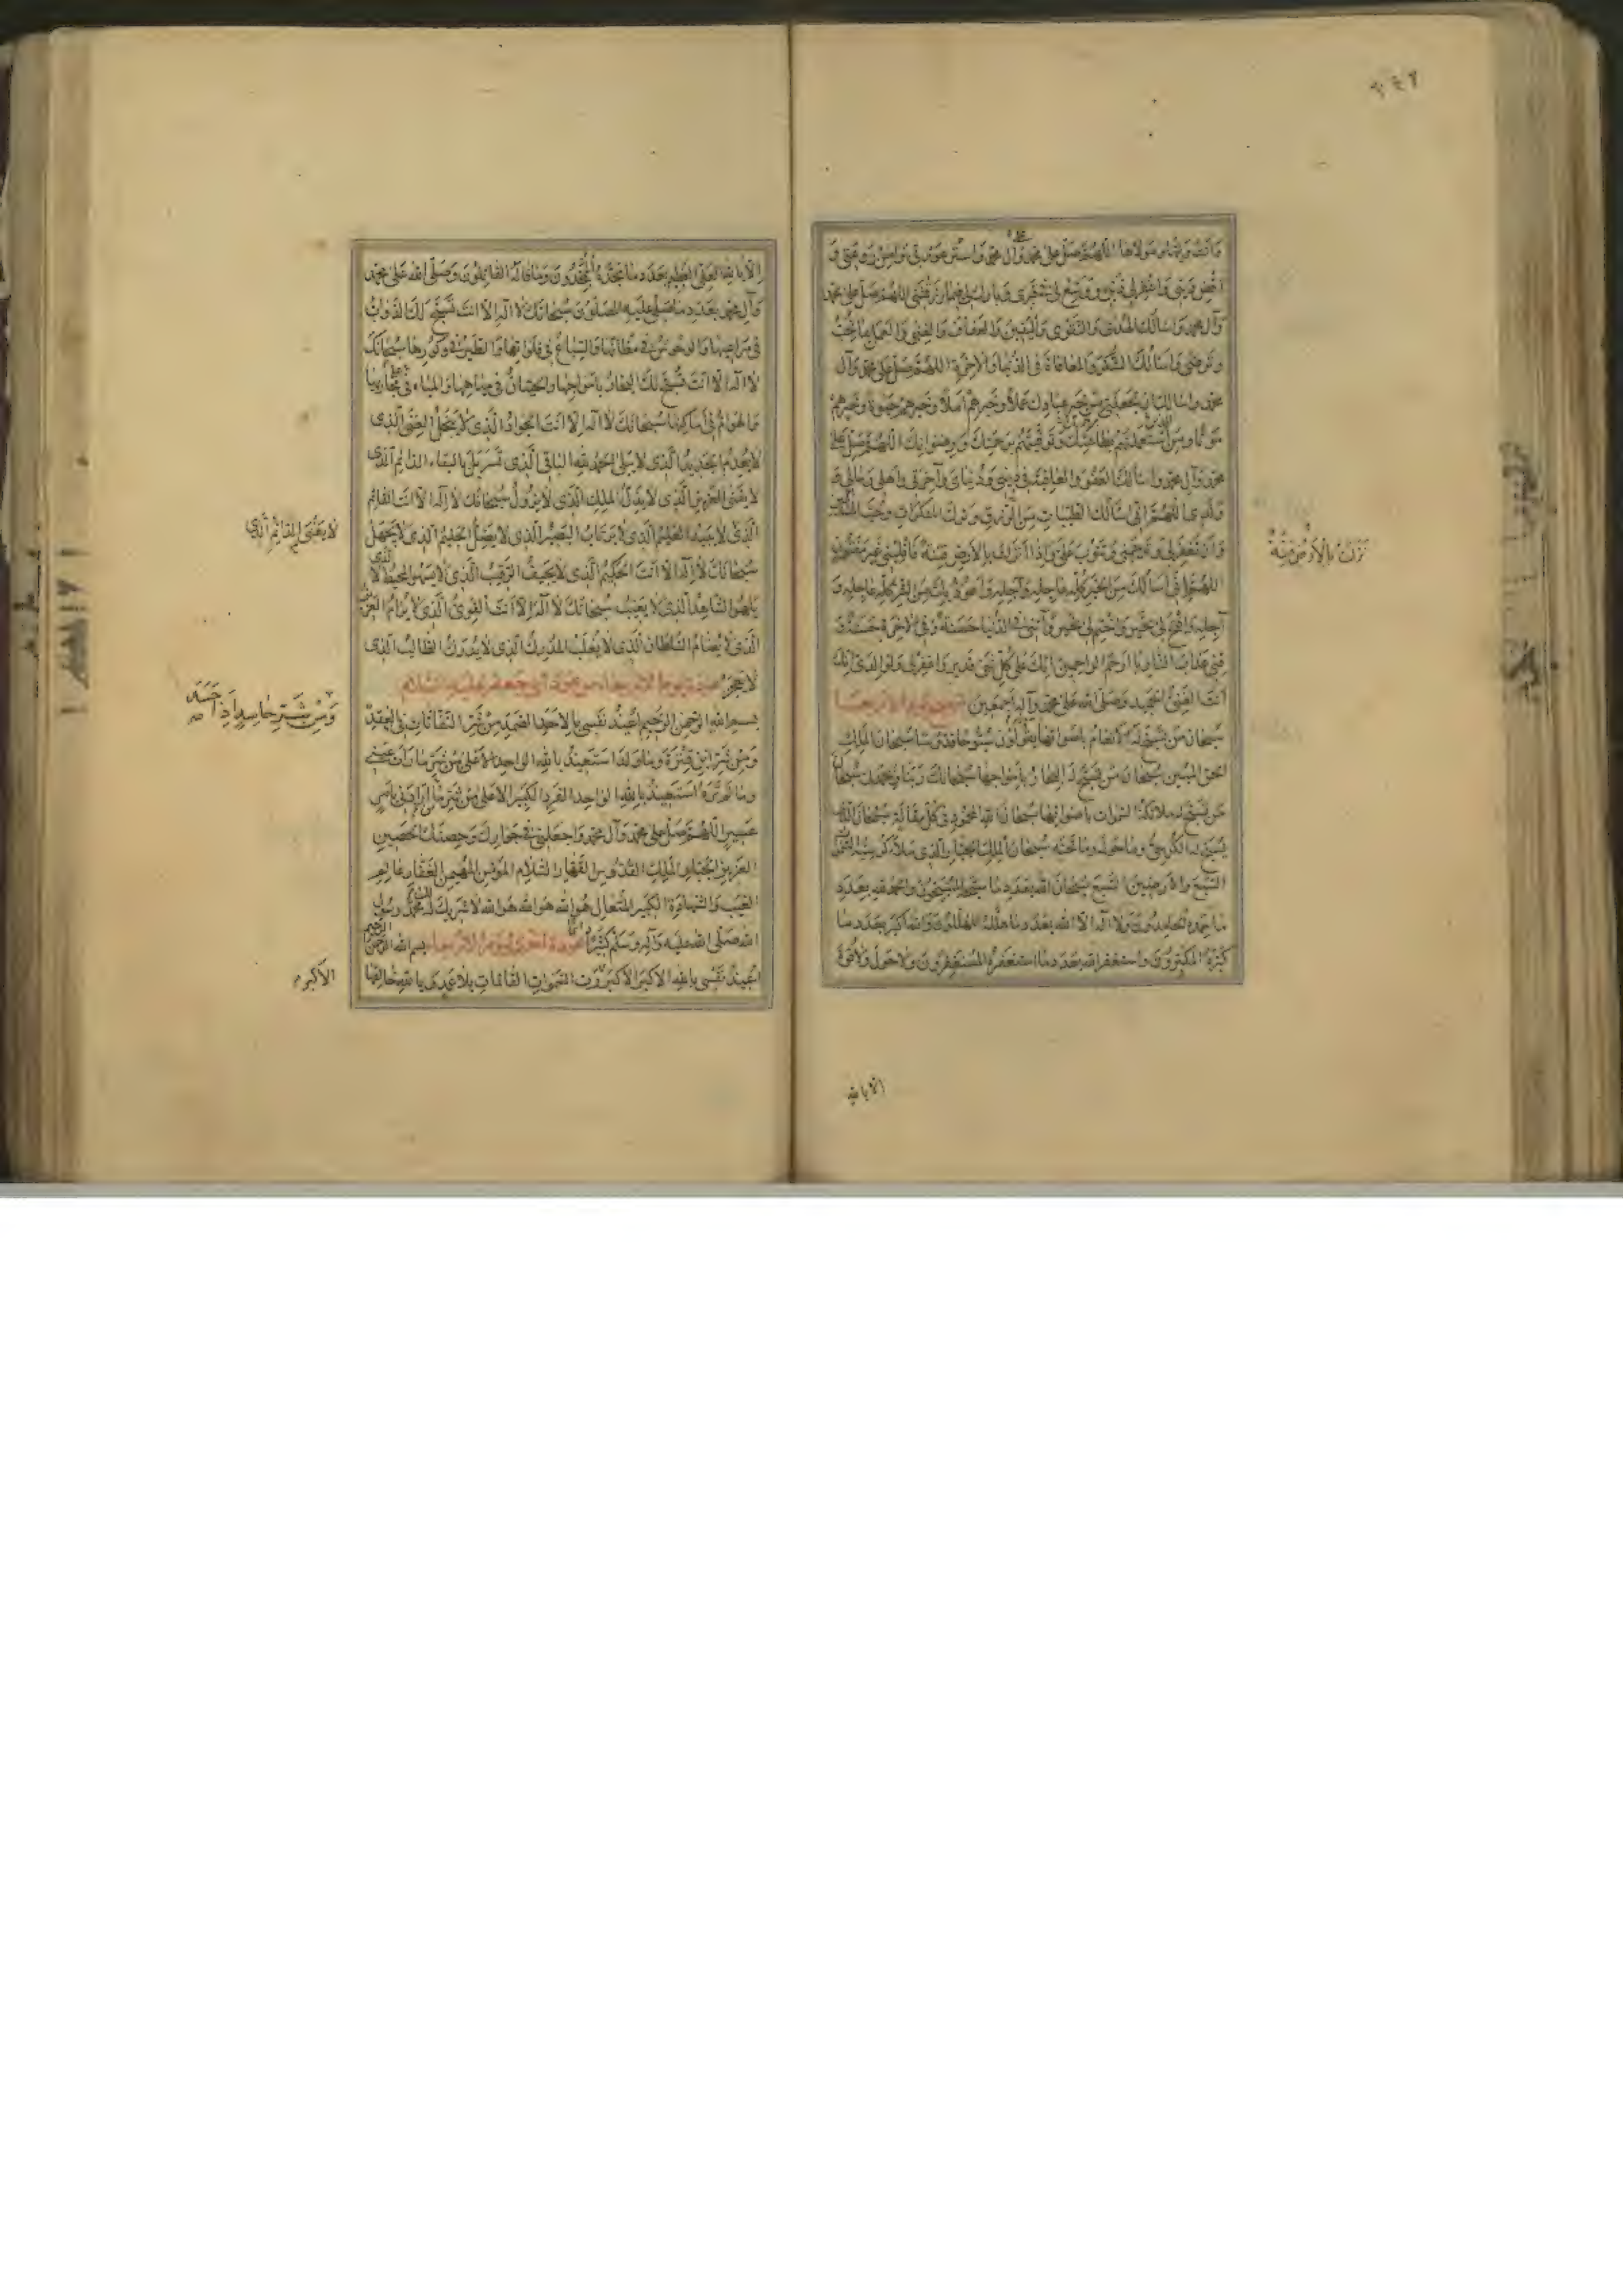 ٢٤٢
اللهم صل على محمد وآل محمد واستر عورتي وآمن روعتي و
اقض ديني واغفر لي ذنبي ووسع لي في قبري وبارك لي فيما رزقتني اللهم صل على محمد
وآل محمد واسألك الهدى والتقوى واليقين والعفاف والغنى والعمل بما تحب
وترضى واسألك الشكر والمعافاة في الدنيا والآخرة اللهم صل على محمد وآل
محمد واسألك ان تجعلني من خير عبادك عملا وخيرهم أملا وخيرهم حيوة وخيرهم
موتا ومن استعملتهم بطاعتك وتوفيتهم برحمتك ورضوانك اللهم صل على
محمد وآل محمد واسألك العفو والعافية في ديني ودنياي وآخرتي وأهلي ومالي و
ولدي اللهم اني اسألك الطيبات من الرزق وترك المنكرات وحب المساكين
وأن تغفر لي وترحمني وتتوب علي واذا أنزلت بالأرض فتنة فاقلبني غير مفتون
اللهم إني أسألك من الخير كله عاجله وآجله وأعوذ بك من الشر كله عاجله و
آجله وافتح لي بخير واختم لي بخير وآتني في الدنيا حسنة وفي الآخرة حسنة و
قني عذاب النار يا ارحم الراحمين إنك على كل شيء قدير واغفر لي ولوالدي إنك
أنت الغني الحميد وصلى الله على محمد وآله أجمعين تسبيح يوم الأربعاء
سبحان من تسبح له الأنعام بأصواتها يقولون سبوحا قدوسا سبحان الملك
الحق المبين سبحان من تسبح له البحار بأمواجها سبحانك ربنا وبحمدك سبحان
من تسبح له ملائكة السموات بأصواتها سبحان الله المحمود في كل مقالة سبحان الذي
يسبح له الكرسي وما حوله وما تحته سبحان الملك الجبار الذي ملأ كرسيه السموات
السبع والأرضين السبع سبحان الله بعدد ما سبحه المسبحون والحمد لله بعدد
ما حمده الحامدون ولا اله الا الله بعدد ما هلله المهللون والله أكبر بعدد ما
كبره المكبرون واستغفر الله بعدد ما استغفره المستغفرون ولا حول ولا قوة
نزلت بالأرض فتنة
الا بالله
إلا بالله العلي العظيم بعدد ما مجده الممجدون وما قاله القائلون وصلى الله على محمد
وآل محمد بعدد ما صلى عليه المصلون سبحانك لا اله الا انت تسبح لك الدواب
في مراعيها والوحوش في مظانها والسباع في فلواتها والطير في وكورها سبحانك
لا اله الا انت تسبح لك البحار بأمواجها والحيتان في مياهها والمياه في مجاريها
والهوام في أماكنها سبحانك لا اله الا انت الجواد الذي لا يبخل الغني الذي
لا يعدم الجديد الذي لا يبلى الحمد لله الباقي الذي تسربل بالبقاء الدائم الذي
لا يفنى العزيز الذي لا يذل الملك الذي لا يزول سبحانك لا اله الا انت القائم
الذي لا يعيى العليم الذي لا يرتاب البصير الذي لا يضل الحليم الذي لا يجهل
سبحانك لا اله الا انت الحكيم الذي لا يحيف الرقيب الذي لا يسهو المحيط الذي لا
يلهو الشاهد الذي لا يغيب سبحانك لا اله الا انت القوي الذي لا يرام العزيز
الذي لا يضام السلطان الذي لا يغلب المدرك الذي لا يدرك الطالب الذي
لا يعجز عوذة يوم الأربعاء من عوذة أبي جعفر عليه السلام
بسم الله الرحمن الرحيم أعيذ نفسي بالأحد الصمد من شر النفاثات في العقد
ومن شر ابن قترة وما ولد استعيذ بالله الواحد الأعلى من شر ما رأت عيني
وما لم تره استعيذ بالله الواحد الفرد الكبير الأعلى من شر من أرادني بأمر
عسير اللهم صل على محمد وآل محمد واجعلني في جوارك وحصنك الحصين
العزيز الجبار الملك القدوس القهار السلام المؤمن المهيمن الغفار عالم
الغيب والشهادة الكبير المتعال هو الله هو الله هو الله لا شريك له محمد رسول
الله صلى الله عليه وآله وسلم كثيرا عوذة اخرى ليوم الأربعاء بسم الله الرحمن الرحيم
أعيذ نفسي بالله الأكبر الأكبر رب السموات القائمات بلا عمد يا خالقها
لا يفنى الدائم الذي
ومن شر حاسد إذا حسد
الأكبر